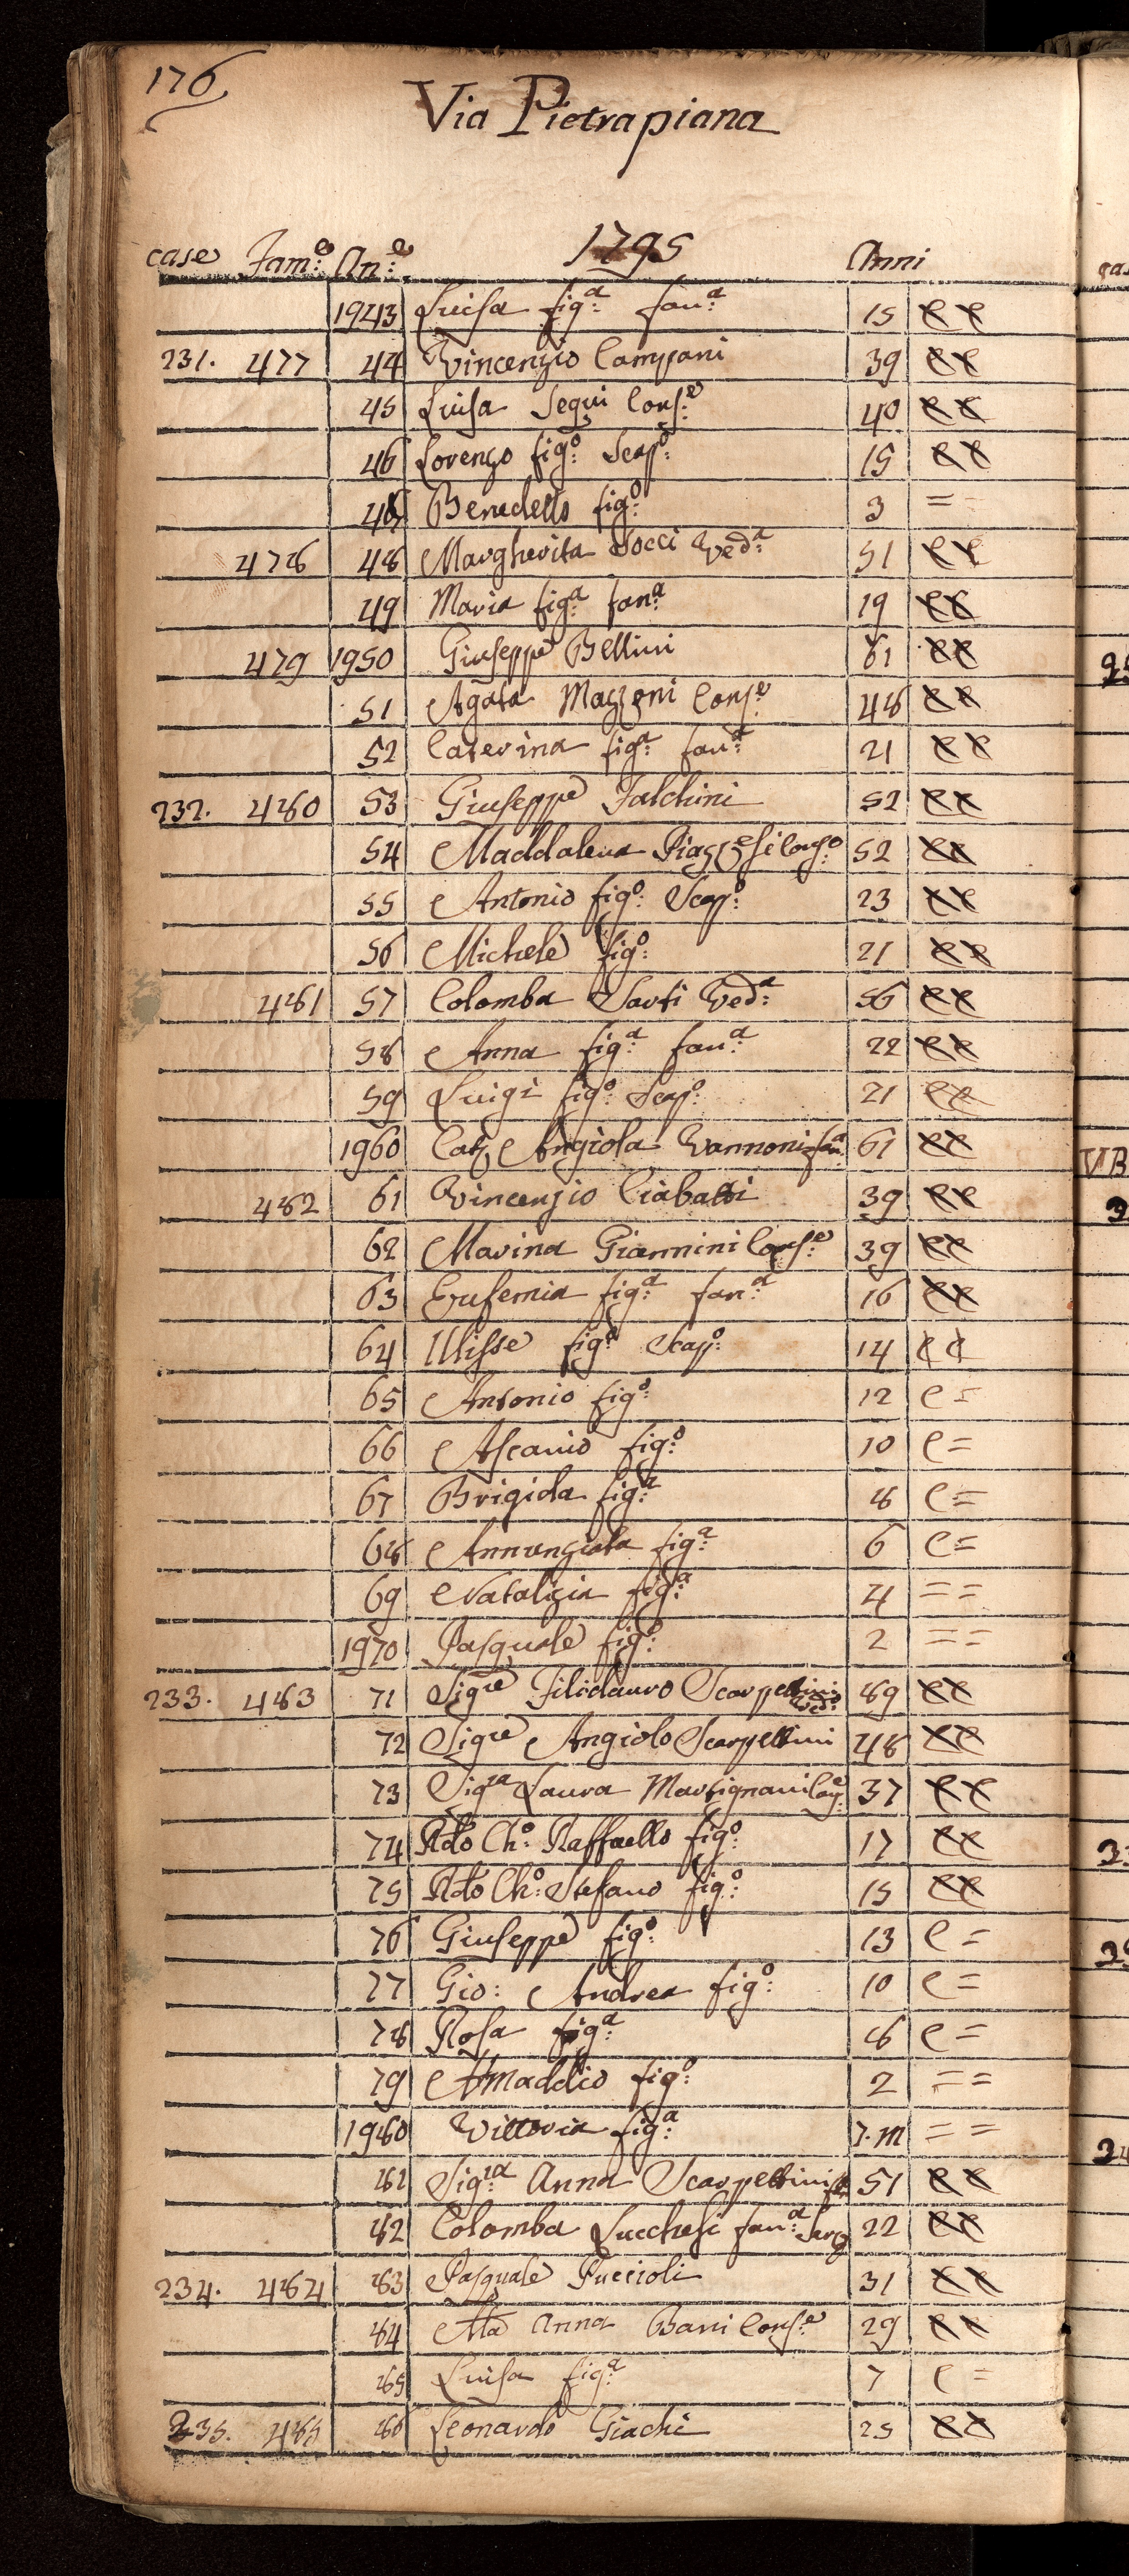 176
Via Pietrapiana
1795
case Fam:e An:e Anni
1943 Luisa fig:a fan:a 15 e e
231. 477 44 Vincenzio Campani 39 e e
45 Luisa Segui Cons:e 40 e e
46 Lorenzo fig:o Scap:o 15 e e
47 Benedetto fig:o 3 = =
478 48 Margherita Socci Ved:a 51 e e
49 Maria fig:a fan:a 19 e e
479 1950 Giuseppe Bellini 61 e e
51 Agata Mazzoni Cons:e 48 e e
52 Caterina fig:a fan:a 21 e e
232. 480 53 Giuseppe Falchini 52 e e
54 Maddalena Piazzesi Cons:e 52 e e
55 Antonio fig:o Scap:o 23 e e
56 Michele fig:o 21 e e
481 57 Colomba Sarti Ved:a 56 e e
58 Anna fig:a fan:a 22 e e
59 Luigi fig:o Scap:o 21 e e
1960 Cat Angiola Vannoni fan:a 61 e e
482 61 Vincenzio Ciabatti 39 e e
62 Marina Giannini Cons:e 39 e e
63 Eufemia fig:a fan:a 16 e e
64 Ulisse fig:o Scap:o 14 e e
65 Antonio fig:o 12 e =
66 Ascanio fig:o 10 e =
67 Brigida fig:a 8 e =
68 Annunziata fig:a 6 e =
69 Natalizia fig:a 4 = =
1970 Pasquale fig:o 2 = =
233. 483 71 Sigre Filidauro Scarpellini Ved:o 89 e e
72 Sigre Angiolo Scarpellini 48 e e
73 Sigra Laura Martignani Con:e 37 e e
74 Rdo Ch:o Raffaello fig:o 17 e e
75 Rdo Ch:o Stefano fig:o 15 e e
76 Giuseppe fig:o 13 e =
77 Gio: Andrea fig:o 10 e =
78 Rosa fig:a 8 e =
79 Amaddio fig:o 2 = =
1980 Vittoria fig:a 7.m = =
81 Sig:ra Anna Scarpellini fan 51 e e
82 Colomba Lucchesi fan:a Serv 22 e e
234. 484 83 Pasquale Puccioli 31 e e
84 Ma Anna Bani Cons:e 29 e e
85 Luisa fig:a 7 e =
235. 485 86 Leonardo Giachi 25 e e